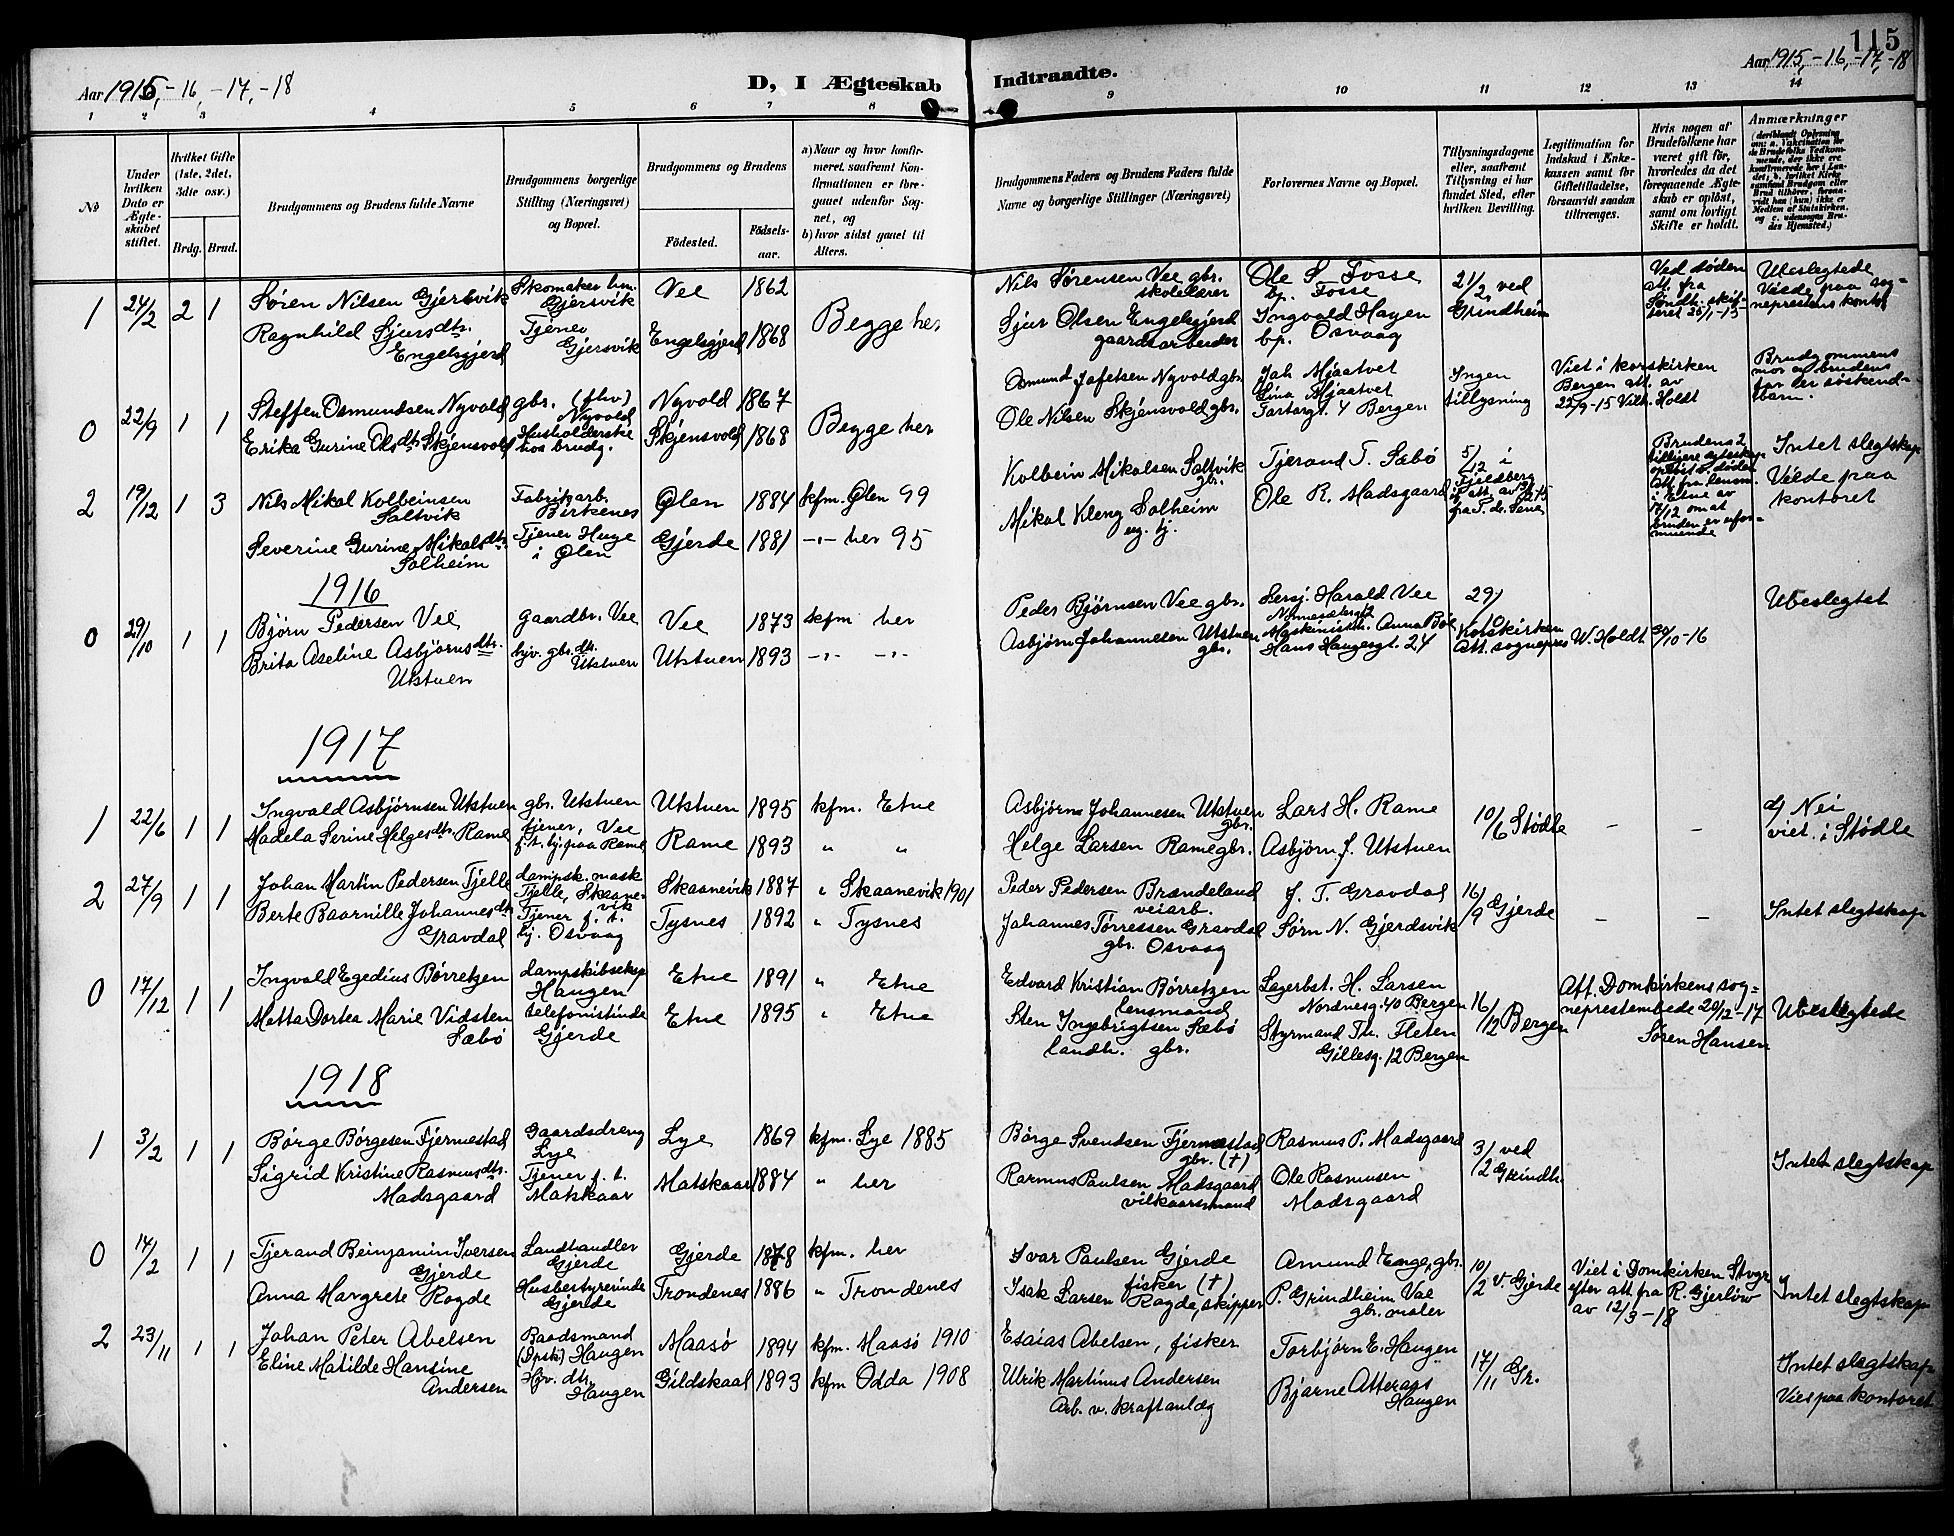 115
Aar 1915, -16, -17, -18
D, I Ægteskab
Indtraadte.
Aar 1915, -16, -17, -18
1 2 3 4 5 6 7 8
9 10 11 12 13 14
№
Under hvilken Dato er Ægteskabet stiftet.
Hvilket Gifte (1ste, 2det, 3die osv.)
Brdg. Brud.
Brudgommens og Brudens fulde Navne
Brudgommens borgerlige Stilling (Næringsvei) og Bopæl.
Brudgommens og Brudens
Fødested.
Fødselsaar.
a) Naar og hvor konfirmeret, saafremt Konfirmationen er foregaaet udenfor Sognet, og
b) hvor sidst gaaet til Alters.
Brudgommens Faders og Brudens Faders fulde Navne og borgerlige Stillinger (Næringsvei)
Forlovernes Navne og Bopæl.
Tillysningsdagene eller, saafremt Tillysning ei har fundet Sted, efter hvilken Bevilling.
Legitimation for Indskud i Enkekassen samt for Giftetilladelse, forsaavidt saadan tiltrænges.
Hvis nogen af Brudefolkene har været gift før, hvorledes da det foregaaende Ægteskab er opløst, samt om lovligt Skifte er holdt.
Anmærkninger
1 24/2 2 1
Søren Nilsen Gjersvik
Skomaker
Gjersvik
Vee 1862
Ragnhild Sjursdtr.
Engelsgjerd
Tjener
Gjersvik
Engelsgjerd 1868
Begge her
Nils Sørensen Vee gbr.
skolelærer
Sjur Olsen Engelsgjerd
gaardsarbeider
Ole S. Fosse
bp. Fosse
Ingvald Hagen
bp. Osvaag
21/2 ved
Grindheim
Ved døden
att. fra
Søndh. skif-
teret
Ubeslegtede
Viede paa sog-
neprestens kontor
0 22/9 1 1
Steffen Osmundsen Nyvold
gbr. (fhv)
Nyvold
Nyvold 1867
Erika Gurine Olsdtr. Skjensvold
Husholderske
hos brudg.
Skjensvold 1868
Begge her
Osmund Jafetsen Nyvold gbr.
Ole Nilsen Skjensvold gbr.
Joh. Mjaatvet
Lina Mjaatvet
4 Bergen
Ingen
tillysning
Viet i korskirken
Bergen att. av
22/9-15 Vilh. Holdt
Brudgommens
mor og brudens
far er søskend-
barn.
2 19/12 1 3
Nils Mikal Kolbeinsen
Saltvik
Fabrikarb.
Birkenes
Ølen 1884 kfm. Ølen 99
Severine Gurine Mikalsdtr.
Solheim
Tjener Hauge
i Ølen
Gjerde 1881 -"- her 95
Kolbein Mikalsen Saltvik
gbr.
Mikal Kleng Solheim
ug. tj.
Tjerand T. Sæbø
Ole R. Madsgaard
5/12 i
Fjeldberg
Brudens 2
tidligere egteskap
opløst v. døden
Att. fra lensm.
i Etne av
17/12 om at
bruden er ufor-
muende
Intet slegtskap
Viede paa
kontoret
1916
0 29/10 1 1
Bjørn Pedersen Vee
Gaardbr. Vee
Vee 1873 kfm her
Brita Aseline Asbjørnsdtr.
Utstuen
hjv. gbr. dtr.
Utstuen
Utstuen 1893 -"- -"-
Peder Bjørnsen Vee gbr.
Asbjørn Johannesen Utstuen
gbr.
Sersj. Harald Vee
Maskinistfr. Anna Bøe
Hans Haugesgt. 24
29/10
Korskirken
Att. sognepres W. Holdt 30/10-16
Ubeslegtet
1917
1 22/6 1 1
Ingvald Asbjørnsen Utstuen
gbr. Utstuen
Utstuen 1895 kfm. Etne
Madela Serine Helgesdtr. Rame
tjener, Vee
f. t. hj. paa Rame
Rame 1893 " "
Asbjørn Johannesen Utstuen
gbr.
Helge Larsen Rame gbr.
Lars H. Rame
Asbjørn J. Utstuen
10/6 Stødle
-
-
Nei
viet i Stødle
2 27/9 1 1
Johan Martin Pedersen Tjelle
dampsk. mask
Tjelle, Skaane-
vik
Skaanevik 1887 " Skaanevik 1901
Berte Baarnille Johannesdtr.
Gravdal
Tjener f. t.
hj. Osvaag
Tysnes 1892 " Tysnes
Peder Pedersen Brændeland
veiarb.
Johannes Tørressen Gravdal
gbr. Osvaag
J. T. Gravdal
Sørn N. Gjerdsvik
16/9 Gjerde
-
-
Intet slegtskap
0 17/12 1 1
Ingvald Egedius Børretzen
dampskibseksp
Haugen
Etne 1891 " Etne
Metta Dortea Marie Vidsten
Sæbø
telefonistinde
Gjerde
Etne 1895 " Etne
Edvard Kristian Børretzen
lensmand
Sten Ingebrigtsen Sæbø
landh. gbr.
Lagerbst. H. Larsen
Nordnesg. 40 Bergen
Styrmand Th. Fleten
Gillesg. 12 Bergen
16/12 Bergen
Att. Domkirkens sog-
neprestembede 20/12-17
Søren Hansen
Ubeslegtede
1918
1 3/2 1 1
Børge Børgesen Fjermestad
Gaardsdreng
Lye
Lye 1869 kfm. Lye 1885
Sigrid Kristine Rasmusdtr.
Madsgaard
Tjener f. t.
Matskaar
Matskaar 1884 " her
Børge Svendsen Fjermestad
gbr. (†)
Rasmus Paulsen Madsgaard
vilkaarsmand
Rasmus P. Madsgaard
Ole Rasmusen
Madsgaard
3/2 ved
Grindh.
Intet slegtskap
0 14/2 1 1
Tjerand Beinjamin Iversen
Gjerde
Landhandler
Gjerde
Gjerde 1878 kfm. her
Anna Margrete Rogde
Husbestyrerinde
Gjerde
Trondenes 1886 " Trondenes
Ivar Paulsen Gjerde
fisker (†)
Isak Larsen Rogde, skipper
Amund Enge, gbr.
P. Grindheim Vae
gbr. maler
10/2 v. Gjerde
Viet i Domkirken Stvgr
efter att. fra R. Gjerløw
av 12/3-18
Intet slegtskap
2 23/11 1 1
Johan Peter Abelsen
Baadsmand
(Dpsk) Haugen
Maasø 1894 kfm. Maasø 1910
Eline Matilde Hansine
Andersen
Hjv. dtr.
Haugen
Gildskaal 1893 kfm Odda 1908
Esaias Abelsen, fisker
Ulrik Martinus Andersen
Arb. v. kraftanlæg
Torbjørn E. Haugen
Bjarne Atteraas
Haugen
17/11 Gr.
Intet slegtskap
Viet paa kontoret